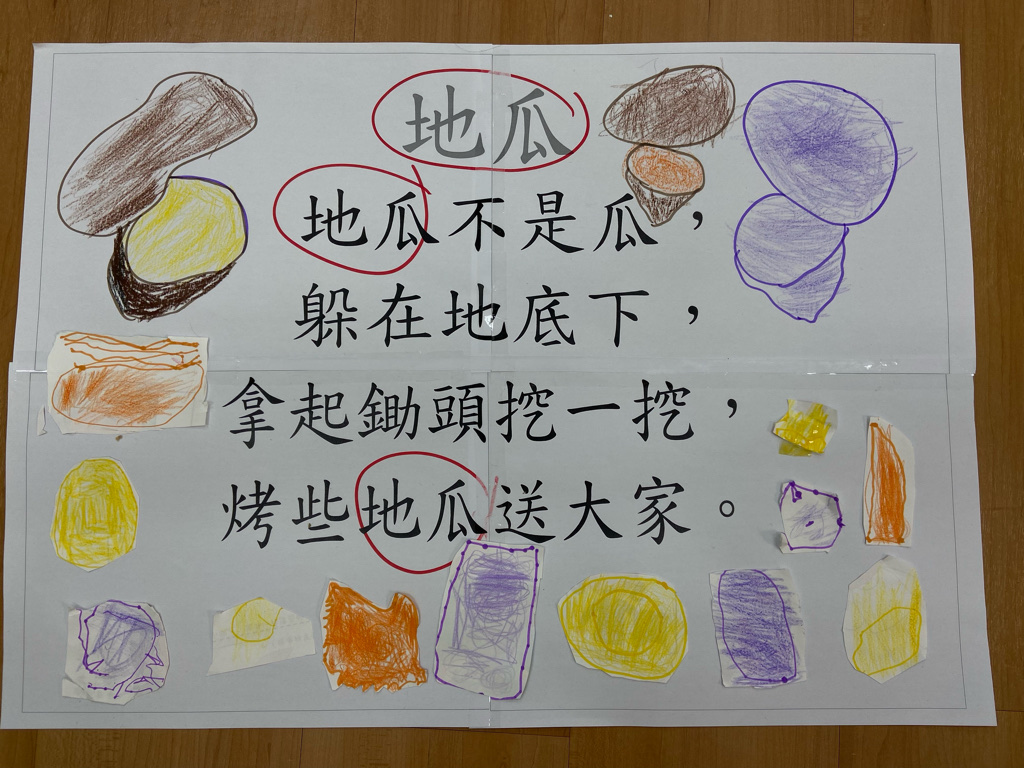 地瓜
地瓜不是瓜，
躲在地底下，
拿起鋤頭挖一挖，
烤些地瓜送大家。